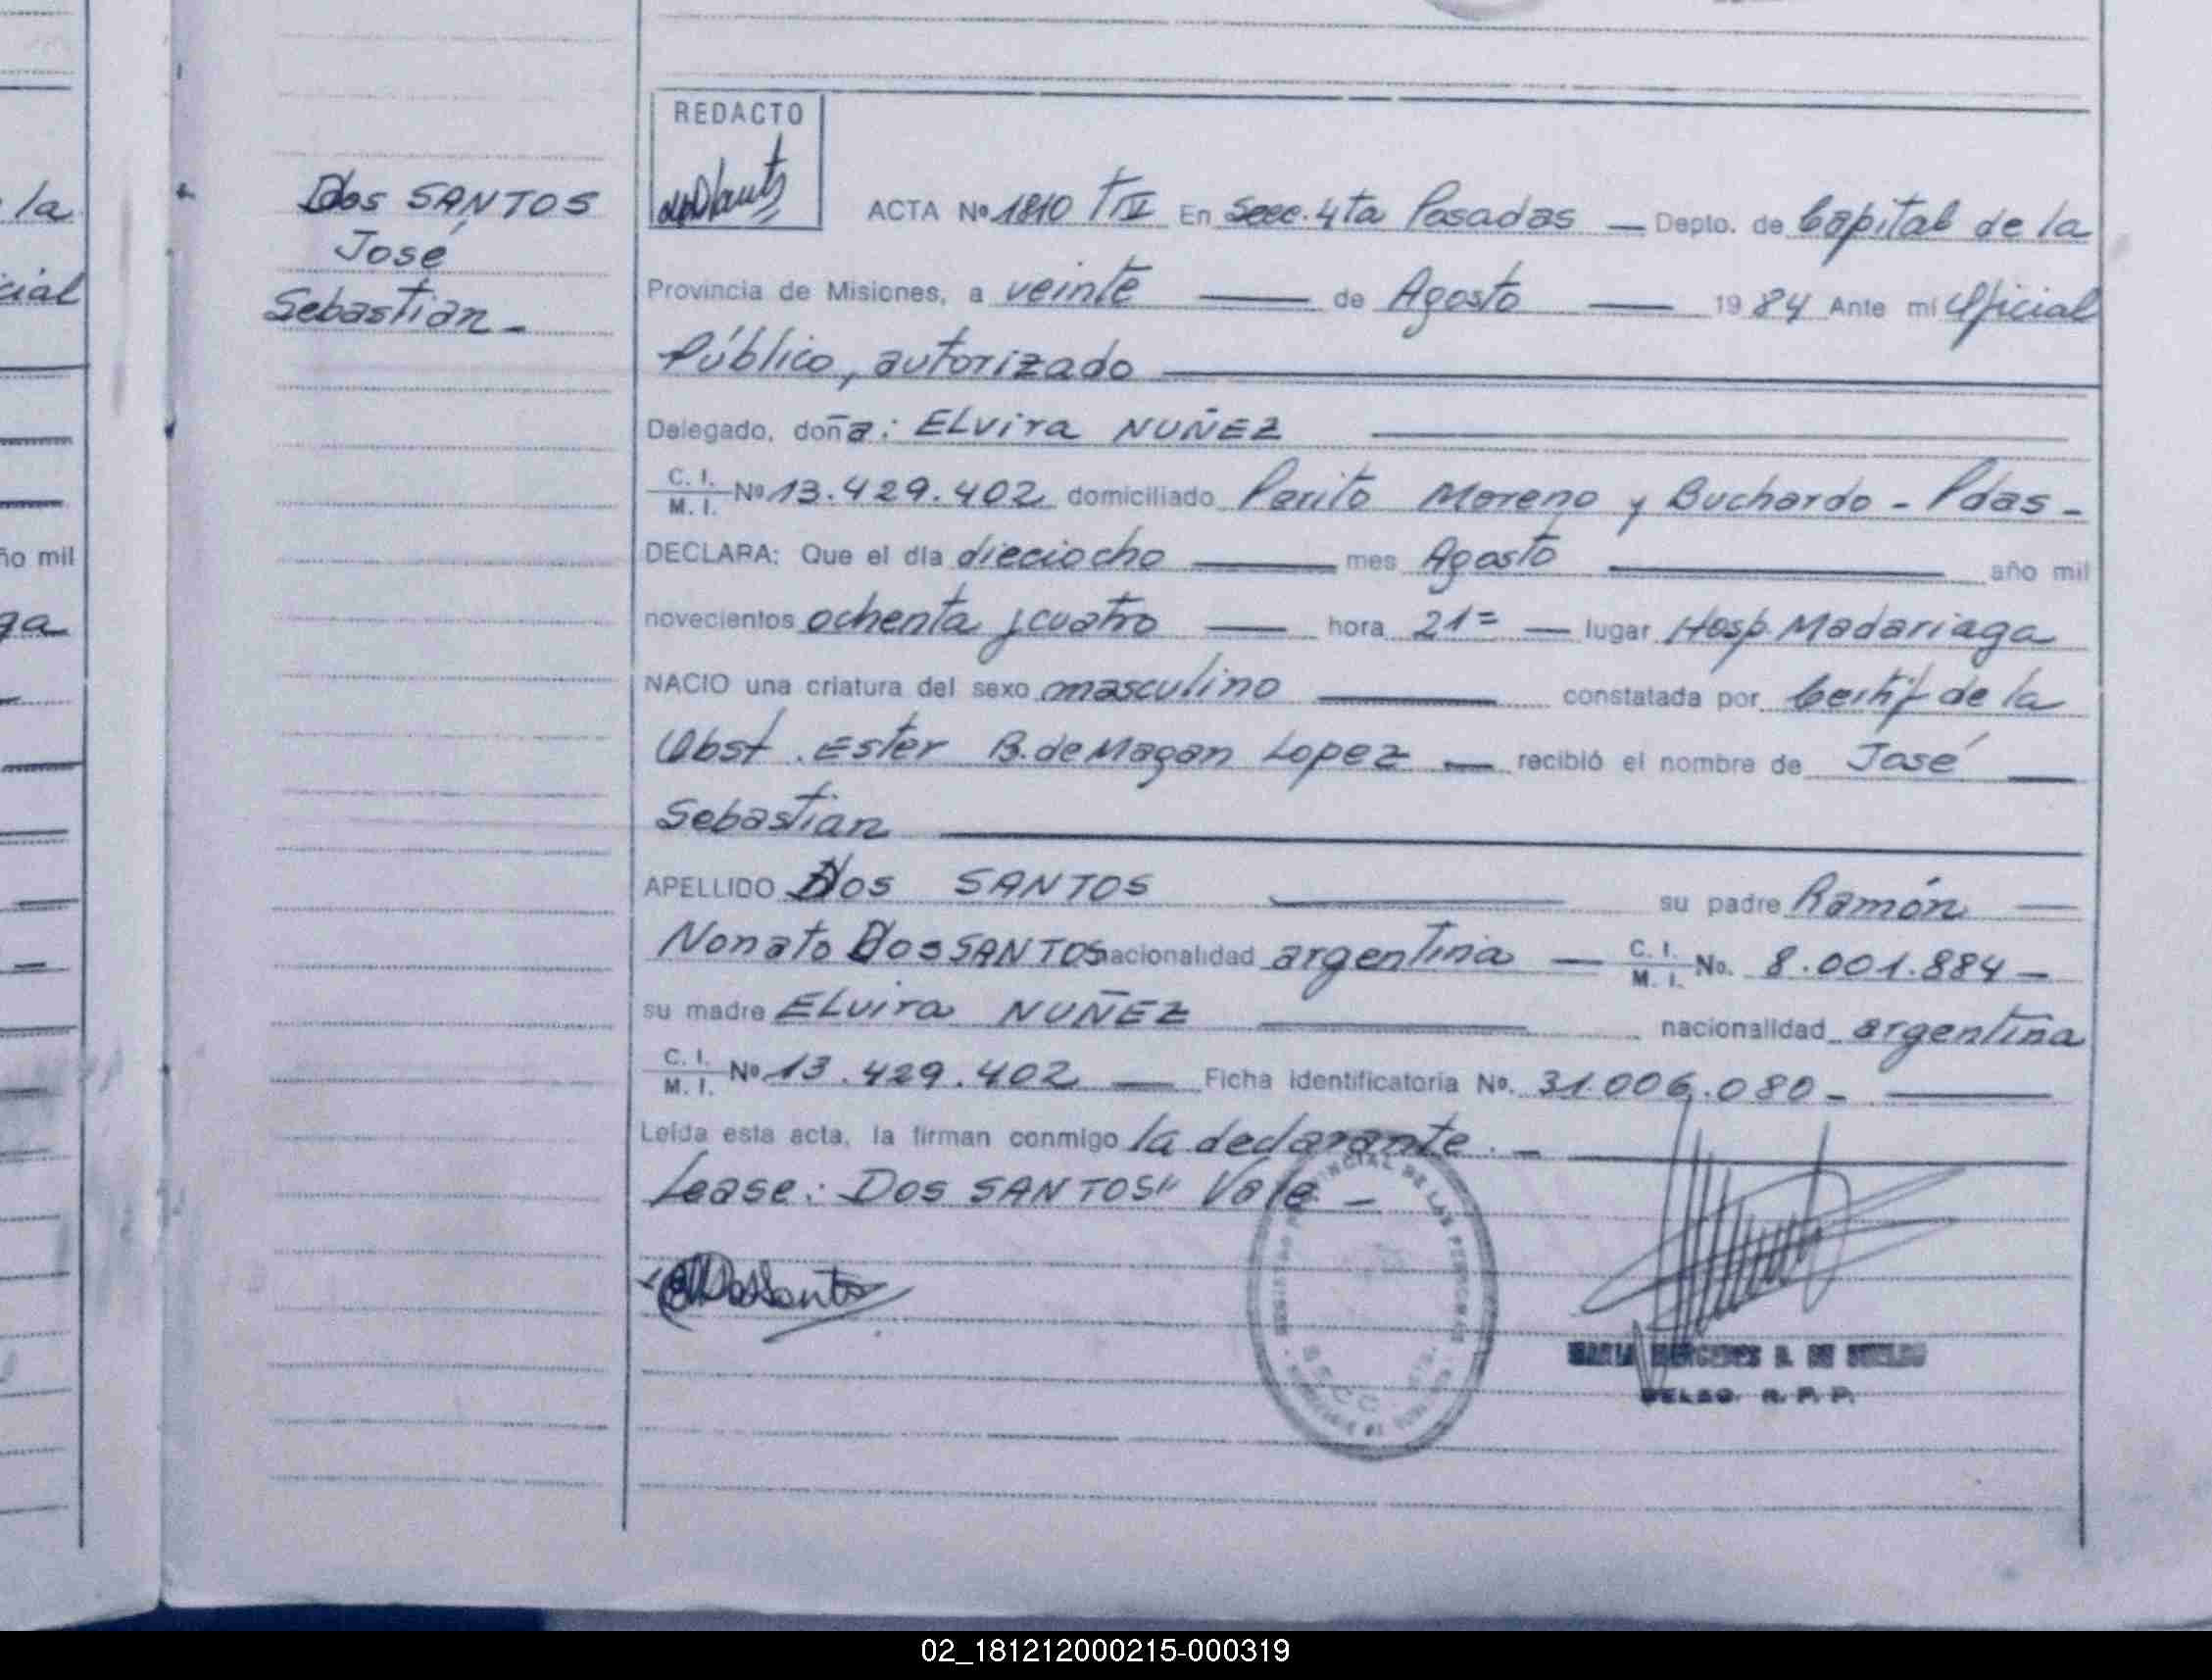 la
cial
ño mil
ga
Dos SANTOS
José
Sebastian -
REDACTO
ACTA Nº 1810 TIV En Secc. 4ta Posadas — Depto. de Capital de la
Provincia de Misiones, a veinte — de Agosto — 1984 Ante mí Oficial
Público, autorizado —
Delegado, doña: Elvira NUÑEZ
C. I.
M. I. Nº 13.429.402 domiciliado Perito Moreno y Buchardo - Pdas -
DECLARA: Que el día dieciocho — mes Agosto — año mil
novecientos ochenta y cuatro — hora 21= — lugar Hosp. Madariaga
NACIO una criatura del sexo masculino — constatada por Certif de la
Obst. Ester B. de Magan Lopez — recibió el nombre de José —
Sebastian —
APELLIDO Dos SANTOS — su padre Ramón —
Nonato Dos SANTOS nacionalidad argentina — C. I.
M. I. No. 8.001.884 —
su madre Elvira NUÑEZ — nacionalidad argentina
C. I.
M. I. Nº 13.429.402 — Ficha identificatoria Nº. 31.006.080 - —
Leída esta acta, la firman conmigo la declarante. - —
Lease: Dos SANTOS" Vale -
DosSantos
MARIA MERCEDES
DELEG. R. P. P.
02_181212000215-000319